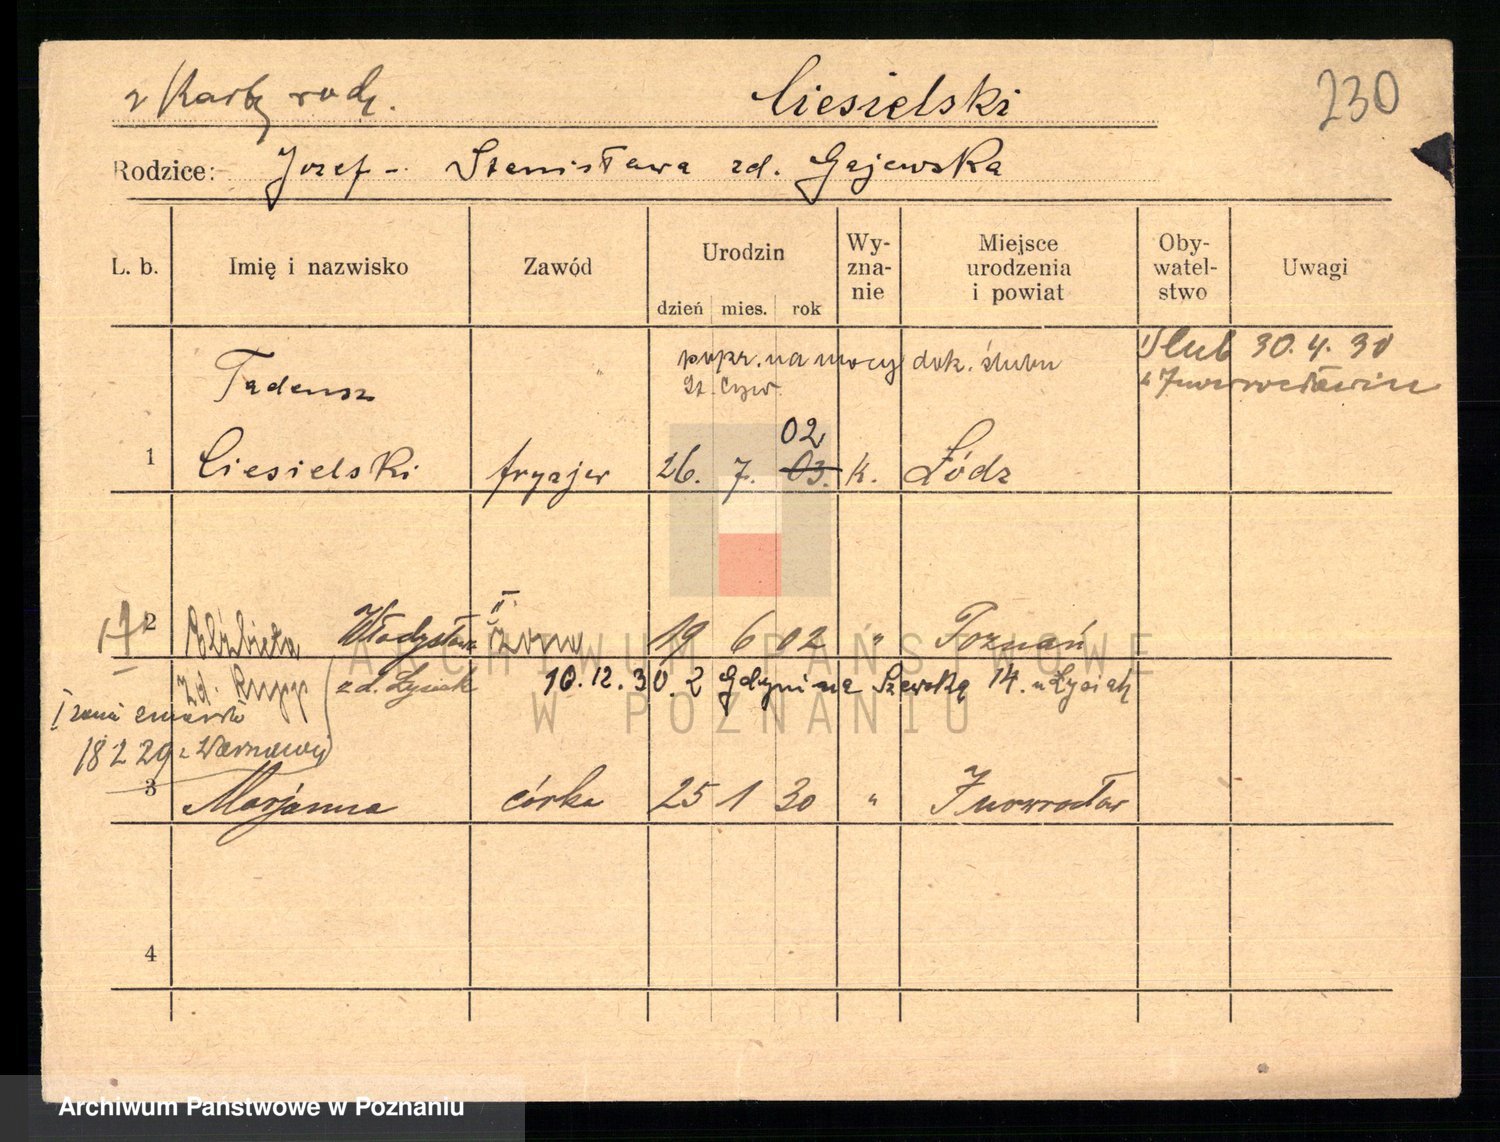 z Karty rodz. Ciesielski 230
Rodzice: Jozef - Stanisława zd. Gajewska
L. b. Imię i nazwisko Zawód Urodzin Wy-zna-nie Miejsce urodzenia i powiat Oby-watel-stwo Uwagi
dzień mies. rok
popr. na mocy dok. ślubu
St. Cyw.
Ślub 30.4.30
w Inowrocławiu
Tadeusz
02
1 Ciesielski fryzjer 26. 7. 03. k. Łódz
II.
2 Elżbieta Władysława żona 19 6 02 " Poznań
zd. Rupp zd. Łysiak 10.12.30. z Gdyni na Szewską 14. u Łysiak
I żona zmarła
18 2 29 z
3 Marjanna córka 25 1 30 " Inowrocław
4
ARCHIWUM PAŃSTWOWE
W POZNANIU
Archiwum Państwowe w Poznaniu